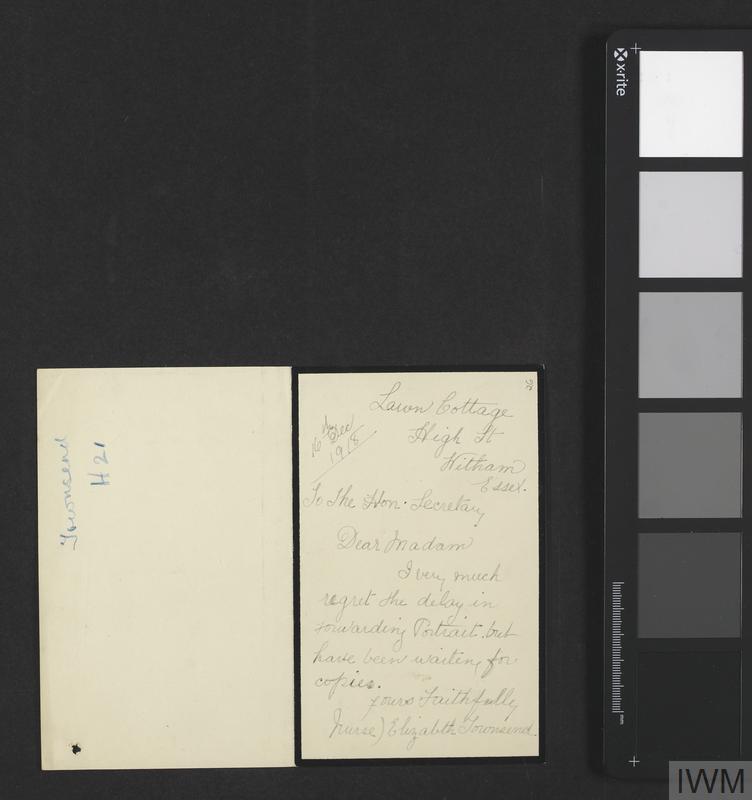 Townsend
H21
26
Lawn Cottage
High St
Witham
Essex.
16th Dec
1918
To The Hon. Secretary
Dear Madam
I very much
regret the delay in
forwarding Portrait. but
have been waiting for
copies.
yours Faithfully
Nurse) Elizabeth Townsend.
x-rite
mm
IWM